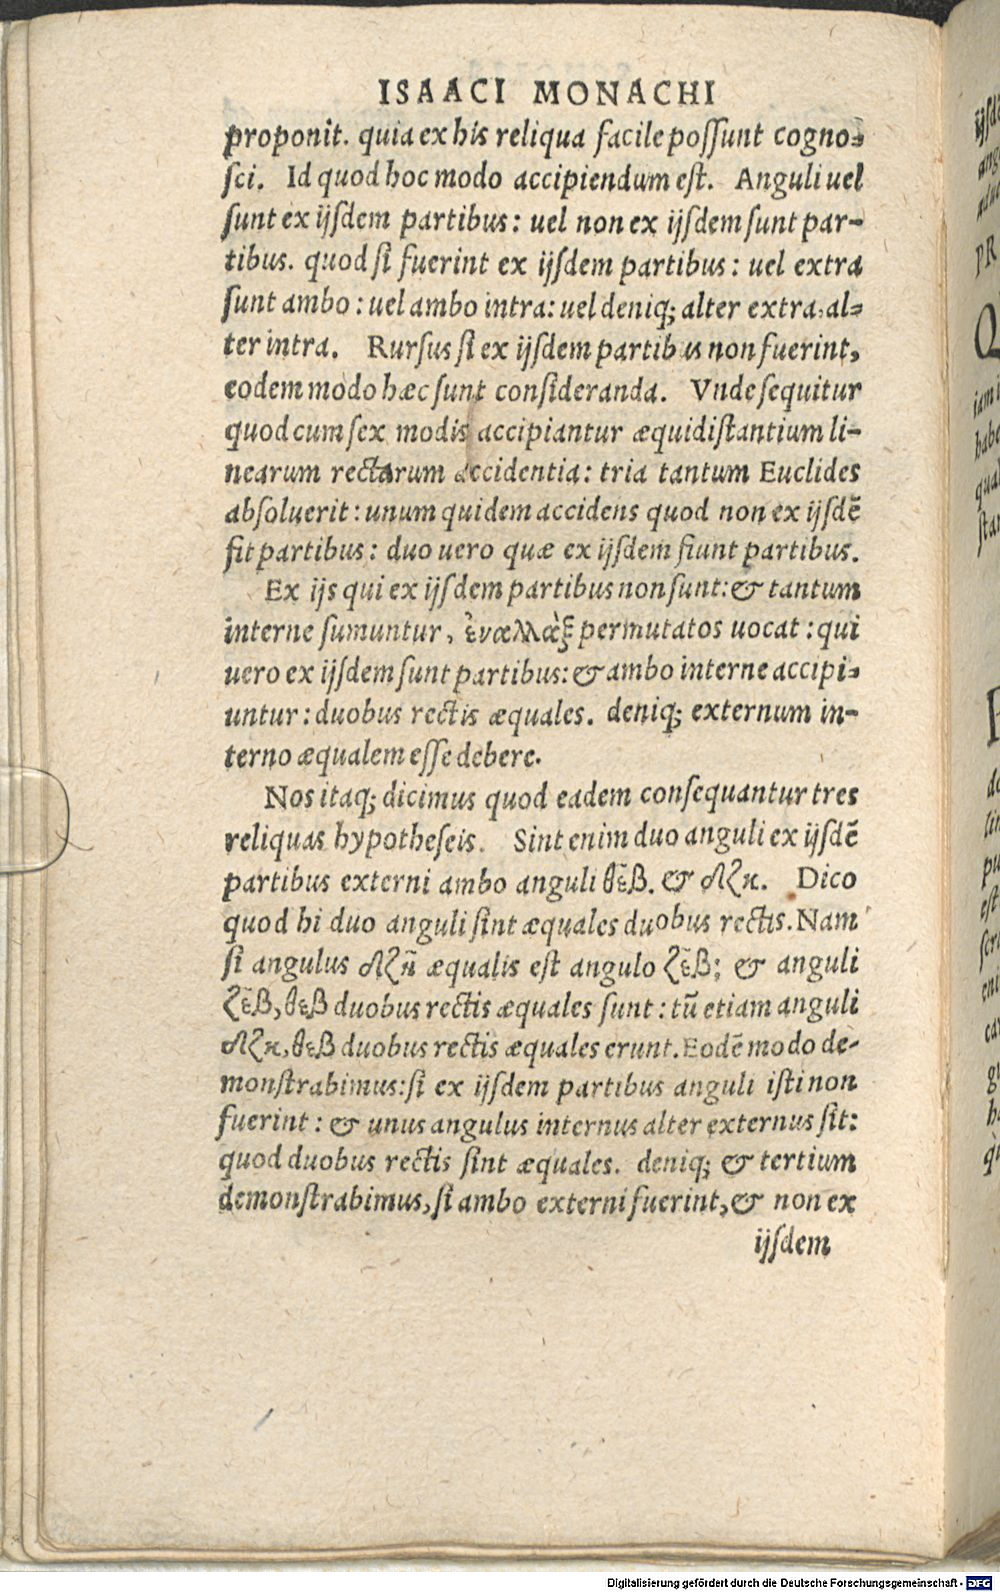 ISAACI MONACHI
proponit. quia ex his reliqua facile poſſunt cogno⸗
ſci. Id quod hoc modo accipiendum eſt. Anguli uel
ſunt ex ijſdem partibus: uel non ex ijſdem ſunt par-
tibus. quod ſi fuerint ex ijſdem partibus: uel extra
ſunt ambo: uel ambo intra: uel deniq; alter extra, al⸗
ter intra. Rurſus ſi ex ijſdem partibus non fuerint,
eodem modo hæc ſunt conſideranda. Vnde ſequitur
quod cum ſex modis accipiantur æquidiſtantium li-
nearum rectarum accidentia: tria tantum Euclides
abſoluerit: unum quidem accidens quod non ex ijſdē
fit partibus: duo uero quæ ex ijſdem fiunt partibus.
Ex ijs qui ex ijſdem partibus non ſunt: & tantum
interne ſumuntur, ἐναλλὰξ permutatos uocat: qui
uero ex ijſdem ſunt partibus: & ambo interne accipi⸗
untur: duobus rectis æquales. deniq; externum in-
terno æqualem eſſe debere.
Nos itaq; dicimus quod eadem conſequantur tres
reliquas hypotheſeis. Sint enim duo anguli ex ijſdē
partibus externi ambo anguli θεβ. & δζκ. Dico
quod hi duo anguli ſint æquales duobus rectis. Nam
ſi angulus δζη æqualis eſt angulo ζεβ; & anguli
ζεβ, θεβ duobus rectis æquales ſunt: tū etiam anguli
δζκ, θεβ duobus rectis æquales erunt. Eodē modo de-
monſtrabimus: ſi ex ijſdem partibus anguli iſti non
fuerint: & unus angulus internus alter externus ſit:
quod duobus rectis ſint æquales. deniq; & tertium
demonſtrabimus, ſi ambo externi fuerint, & non ex
ijſdem
Digitalisierung gefördert durch die Deutsche Forschungsgemeinschaft - DFG